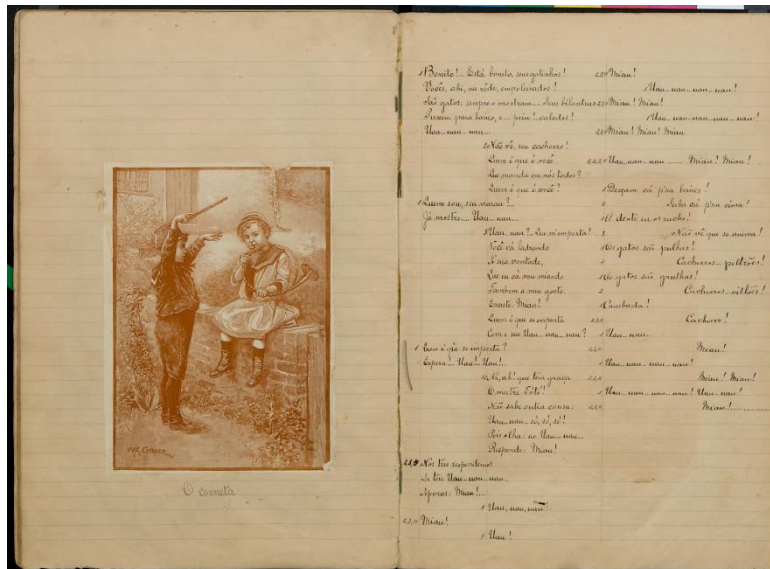 O corneta
1 Bonito!... Está bonito, seus gatinhos!
Vocês, ahi, na rêde, empoleirados!
São gatos, sempre o mostram... Seus bilontras
Passem para baixo, e... psiu!.. calados!
Uau... uau... uau...
2 Não vê, seu cachorro!
Quem é que é você
Qu manda em nós todos?
Quem é que é você?
1 Quem sou, seu
Já mostro... Uau... uau...
3 Uau... uau?.. Que m'importa!
Você vá ladrando
Á sua vontade,
Que eu cá vou miando
Tambem a meu gosto.
Escute: Miau!
Quem é que se importa
Com o seu Uau... uau... uau?
1 Quem é que se importa?
Espera!.. Uau! Uau!..
4 Ah, ah! que tem graça
O mestre Tótó!
Não sabe outra cousa:
Uau... uau... só, só, só!
Pois olha: ao Uau... uau...
Respondo: Miau!
2,3,4 Nós tres respondemos
Se teu Uau... uau... uau...
Apenas: Miau!..
1 Uau, uau, uau?
2,3,4 Miau!
1 Uau!
2,3,4 Miau!
Uau... uau... uau... uau!
2,3,4 Miau! Miau!
Uau... uau... uau... uau... uau!
2,3,4 Miau! Miau! Miau
2,3,4 Uau... uau... uau... Miau! Miau!
1 Desçam cá p'ra baixo!
2 Suba cá p'ra cima!
1 O dente eu os racho!
3 Não vê que se anima!
1 Os gatos são pulhas!
4 Cachorros... poltrões!
1 Os gatos são grulhas!
2 Cachorros... vilões!
1 Cambada!
2,3,4 Cachorro!
1 Uau... uau...
2,3,4 Miau!
1 Uau... uau... uau... uau!
2,3,4 Miau! Miau!
1 Uau... uau... uau... uau! Uau... uau!
2,3,4 Miau!............